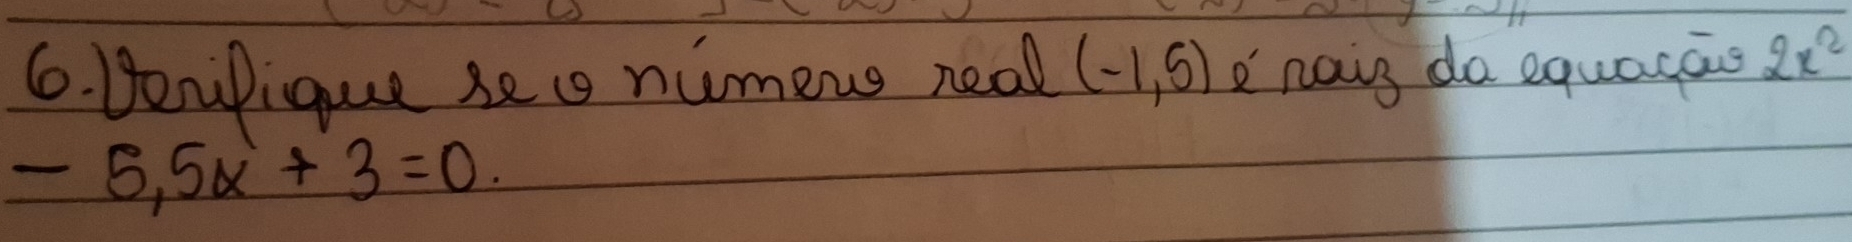 6. Verifique se o número real (-1,5) é raiz da equação 2x²
- 5,5x + 3 = 0.